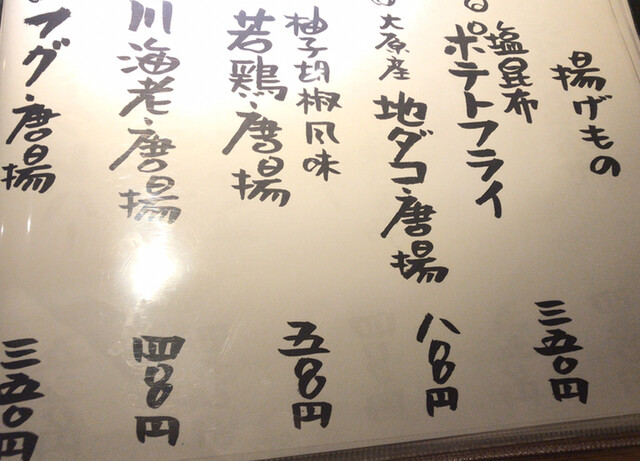 揚げもの
塩昆布
ポテトフライ
三五〇円
大原産
地ダコ唐揚
八〇〇円
柚子胡椒風味
若鶏唐揚
五〇〇円
川海老唐揚
四〇〇円
フグ唐揚
三五〇円